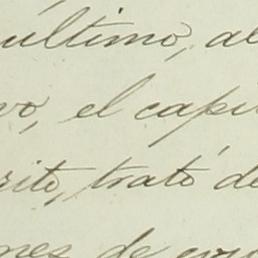 ultimo, al
vo, el capi
rito, trató de
nes de con